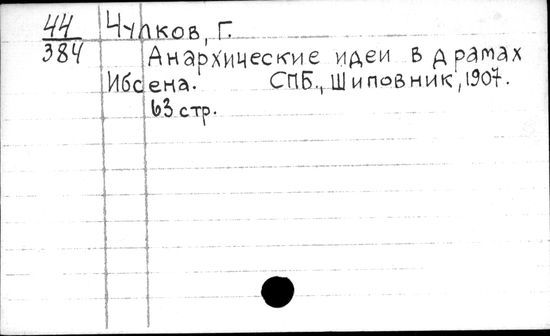 44 Чулков, Г.
384 Анархические идеи в драмах
Ибсена. СПБ., Шиповник, 1907.
63 стр.